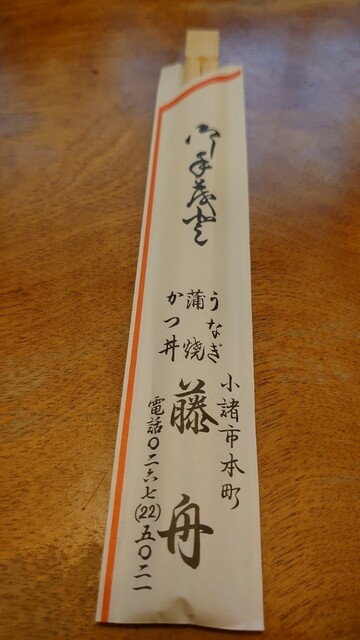 御手茂登
うなぎ
蒲焼
かつ丼
小諸市本町
藤舟
電話〇二六七(22)五〇二一